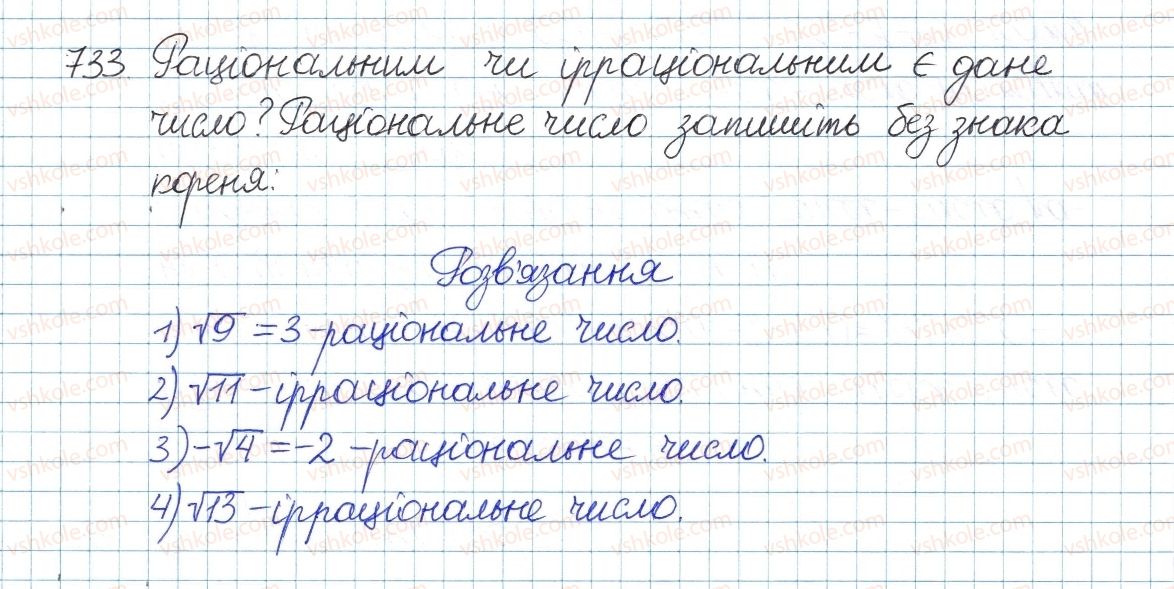 733. Раціональним чи ірраціональним є дане
число? Раціональне число запишіть без знака
кореня:
Розв'язання
1) √9 = 3 - раціональне число.
2) √11 - ірраціональне число.
3) -√4 = -2 - раціональне число.
4) √13 - ірраціональне число.